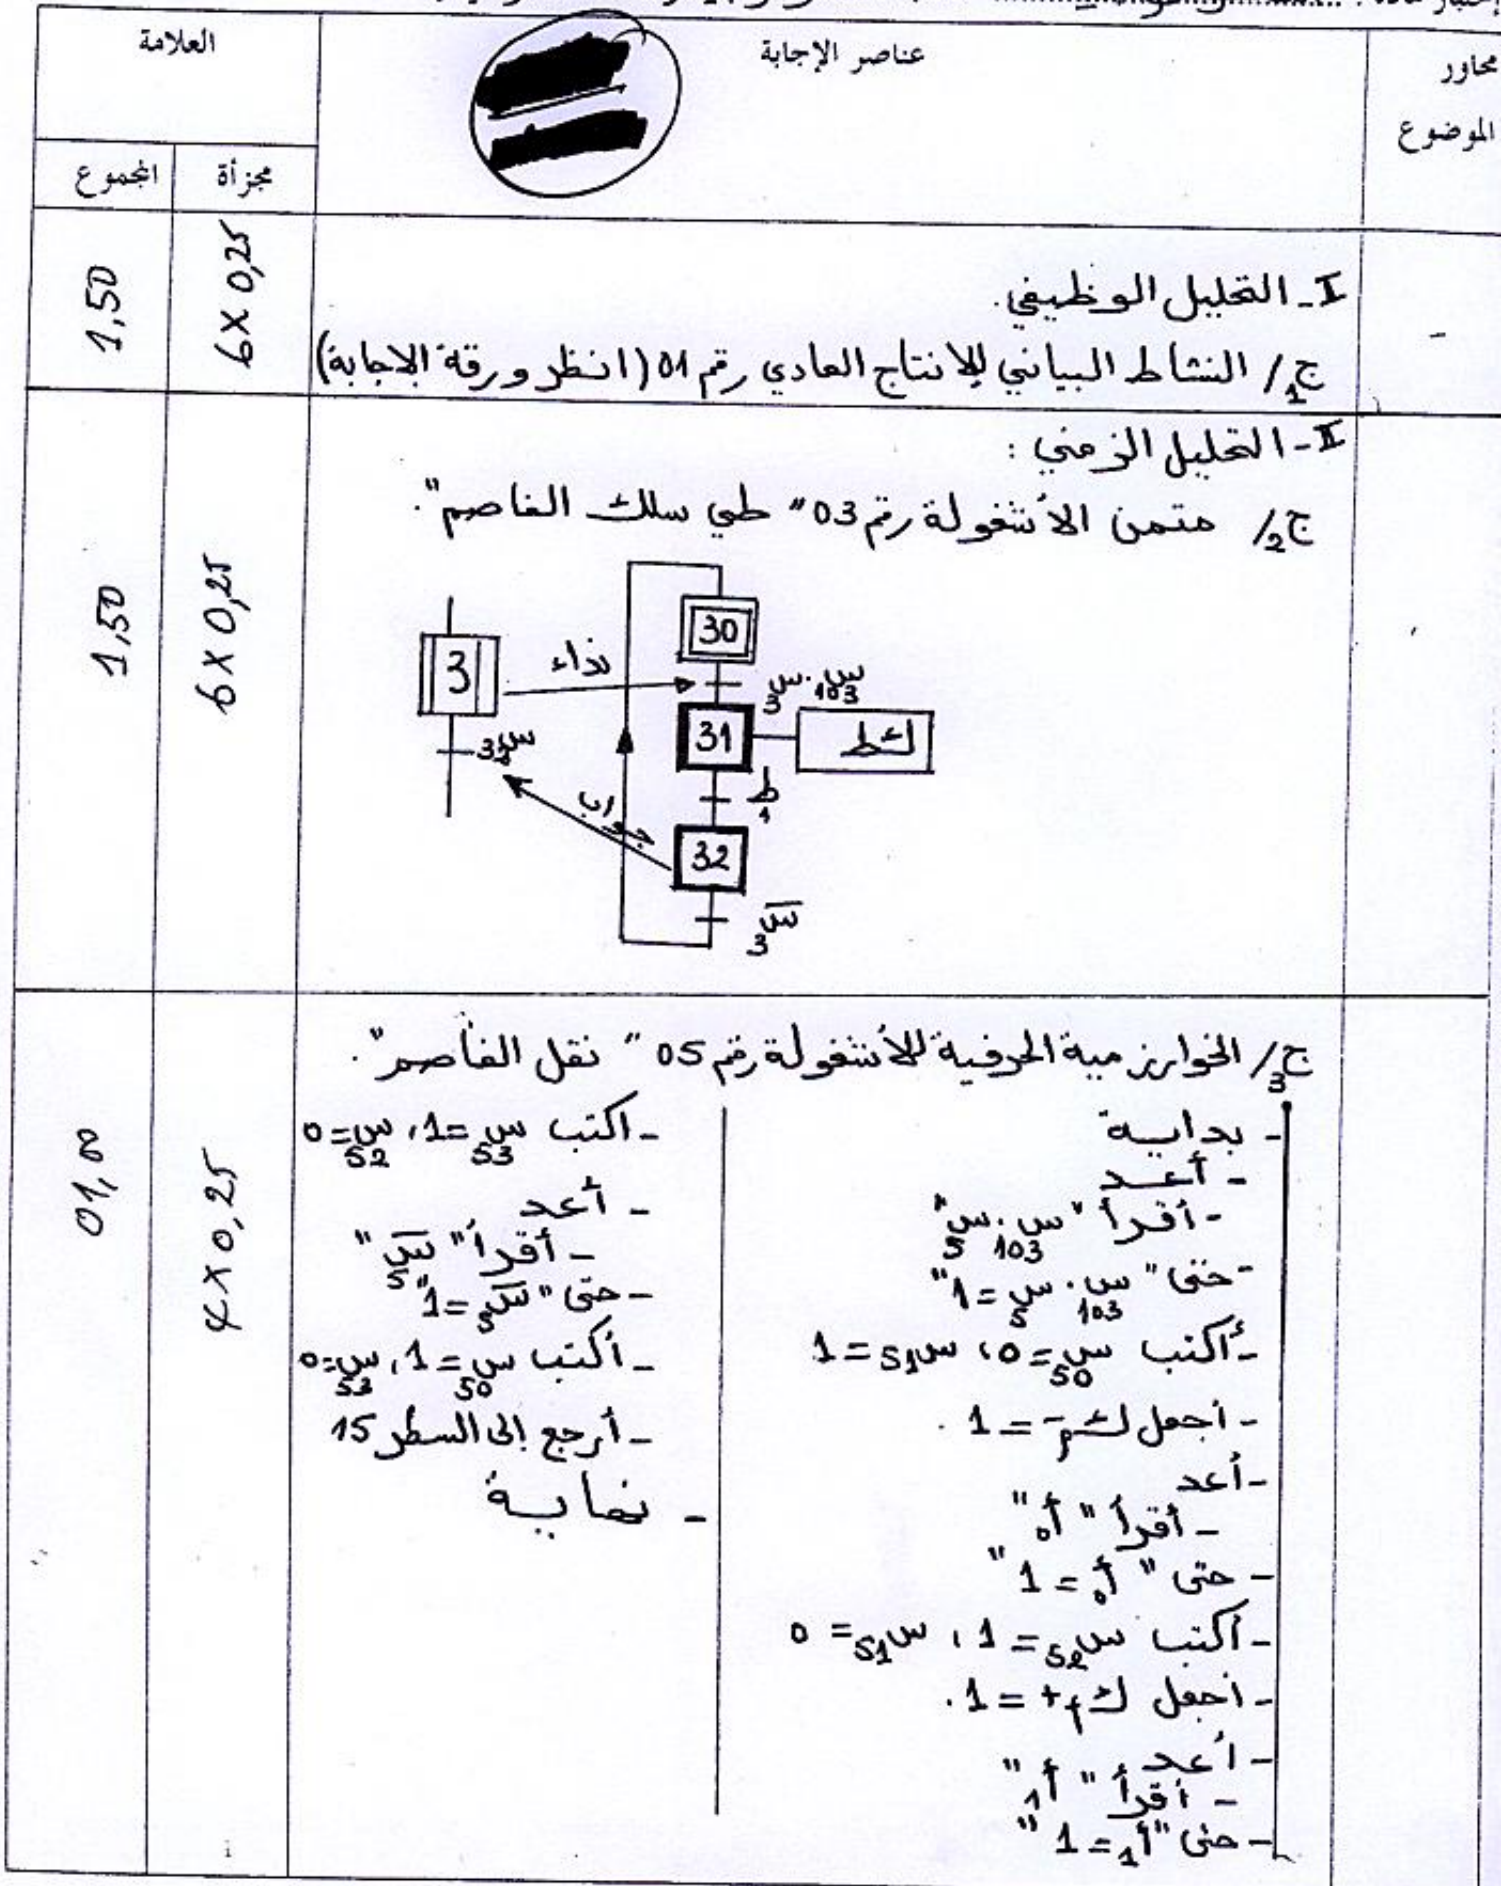 إختبار مادة :
محاور
الموضوع
عناصر الإجابة
العلامة
مجزأة
المجموع
I- التحليل الوظيفي.
ج1/ النشاط البياني للإنتاج العادي رقم 01 (انظر ورقة الإجابة)
6 X 0,25
1,50
II- التحليل الزمني :
ج2/ متمن الأشغولة رقم 03 "طي سلك الفاصم".
30
3
نداء
س3 . س103
31
ك ط
س32
ط1
جواب
32
س̅3
6 X 0,25
1,50
ج3/ الخوارزمية الحرفية للأشغولة رقم 05 "نقل الفاصم".
- بداية
- أعد
- أقرأ "س103 . س5"
- حتى "س103 . س5 = 1"
- أكتب س50 = 0، س51 = 1
- أجعل ك م- = 1 .
- أعد
- أقرأ "أ0"
- حتى "أ0 = 1"
- أكتب س52 = 1، س51 = 0
- اجعل ك م+ = 1 .
- أعد
- أقرأ "أ1"
- حتى "أ1 = 1"
- اكتب س53 = 1، س52 = 0
- أعد
- أقرأ "س̅5"
- حتى "س̅5 = 1"
- أكتب س50 = 1، س53 = 0
- أرجع إلى السطر 15
- نهاية
4 X 0,25
01,00